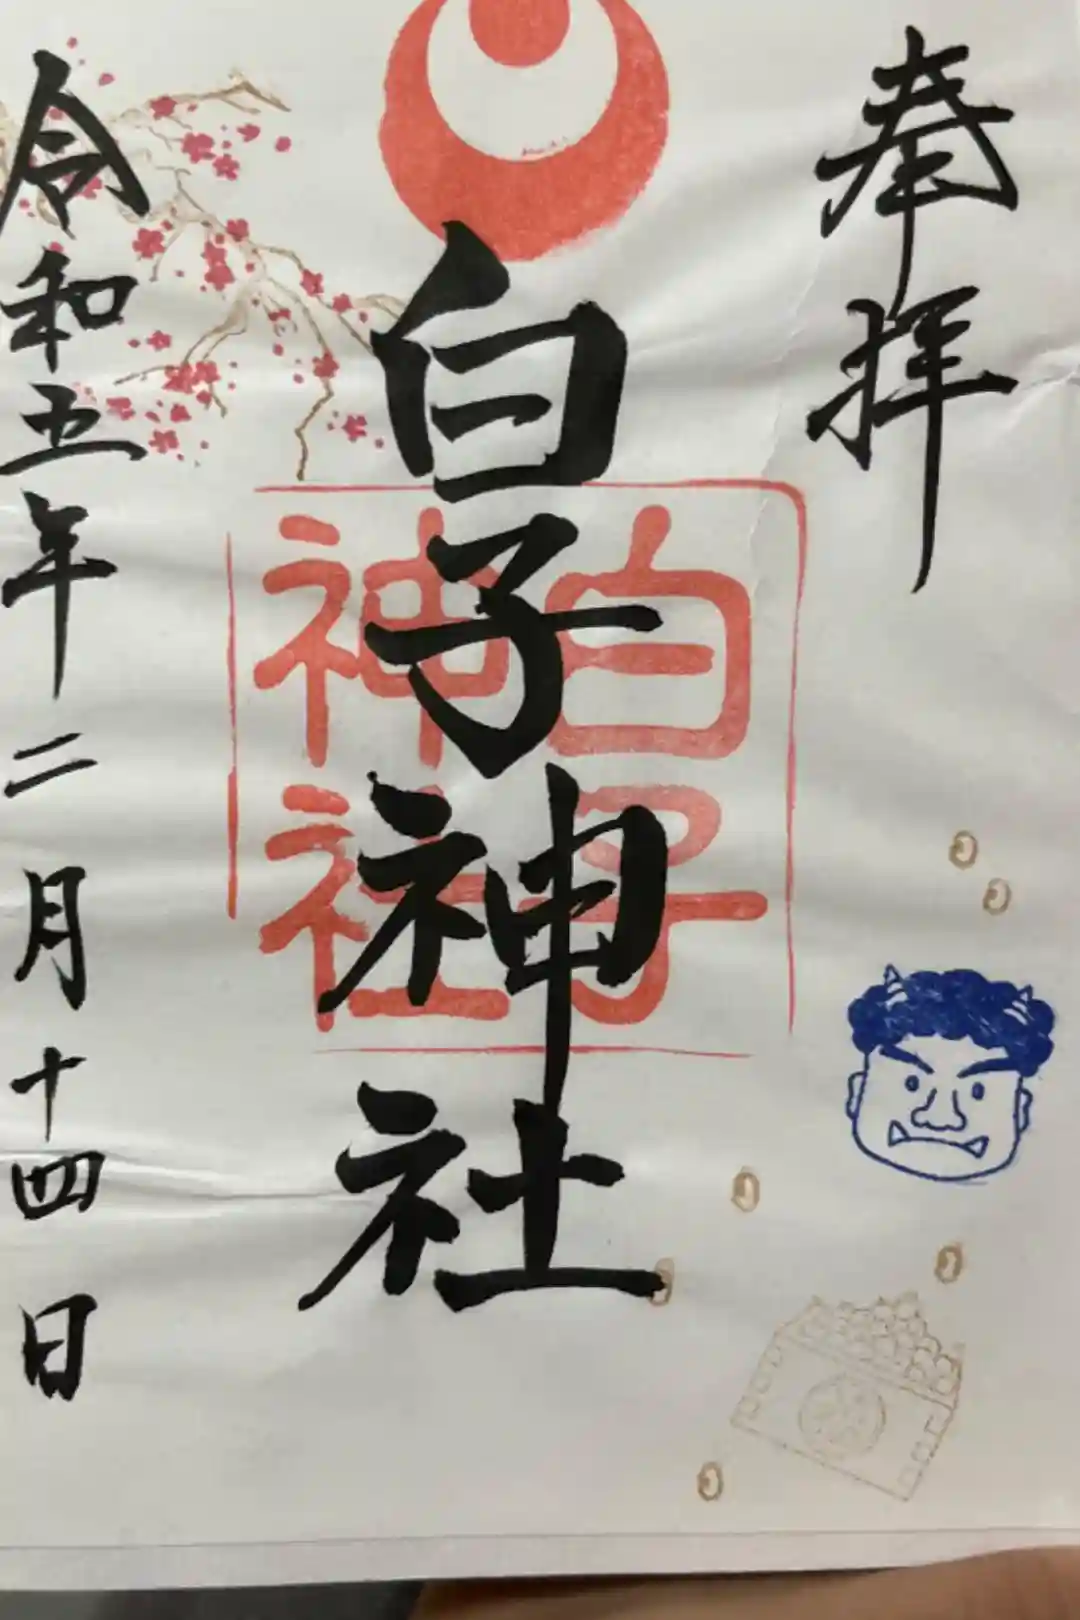 奉拝
白子神社
白子
神社
令和五年二月十四日